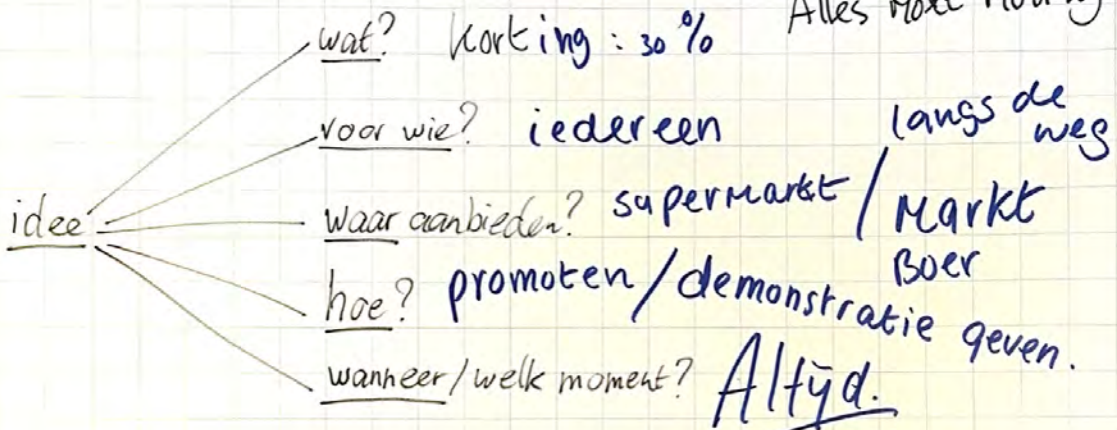 Alles moet
wat? Korting : 30 %
voor wie? iedereen
langs de
weg
idee
waar aanbieden? supermarkt / Markt
Boer
hoe? promoten / demonstratie geven.
wanneer/welk moment? Altijd.